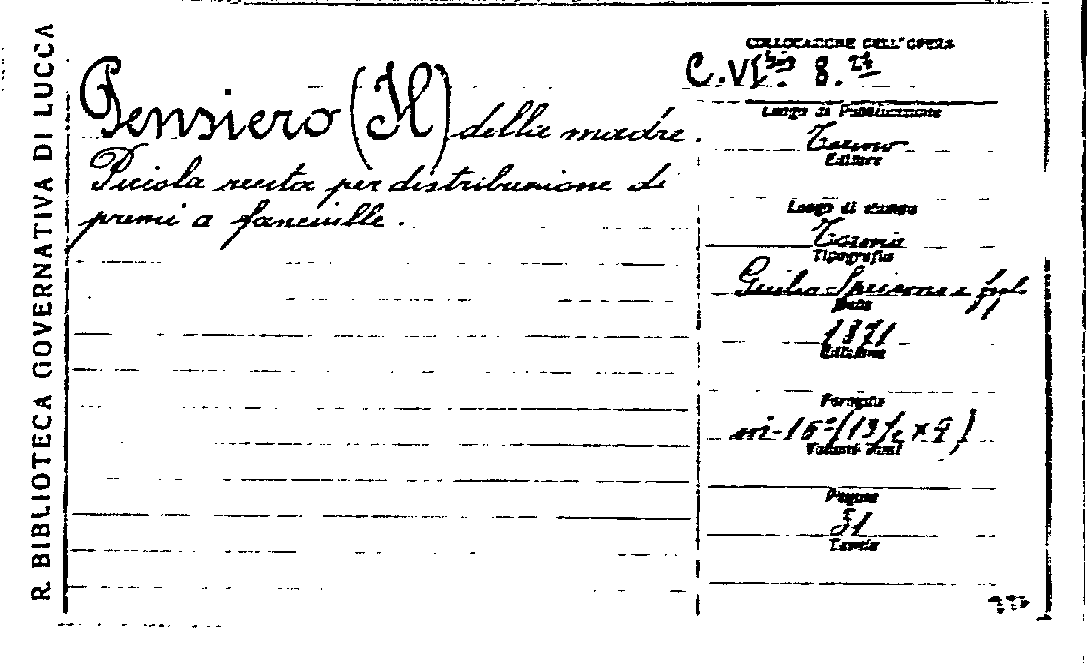 R. BIBLIOTECA GOVERNATIVA DI LUCCA
Pensiero (Il) della madre.
Piccola recita per distribuzione di
premi a fanciulle.
COLLOCAZIONE DELL'OPERA
C.VI 8.
Luogo di Pubblicazione
Torino
Editore
Luogo di stampa
Torino
Tipografia
Giulio Speirani e figli
Data
1871
Edizione
Formato
in-16º (13/2 x 9)
Volumi
Pagine
51
Tavole